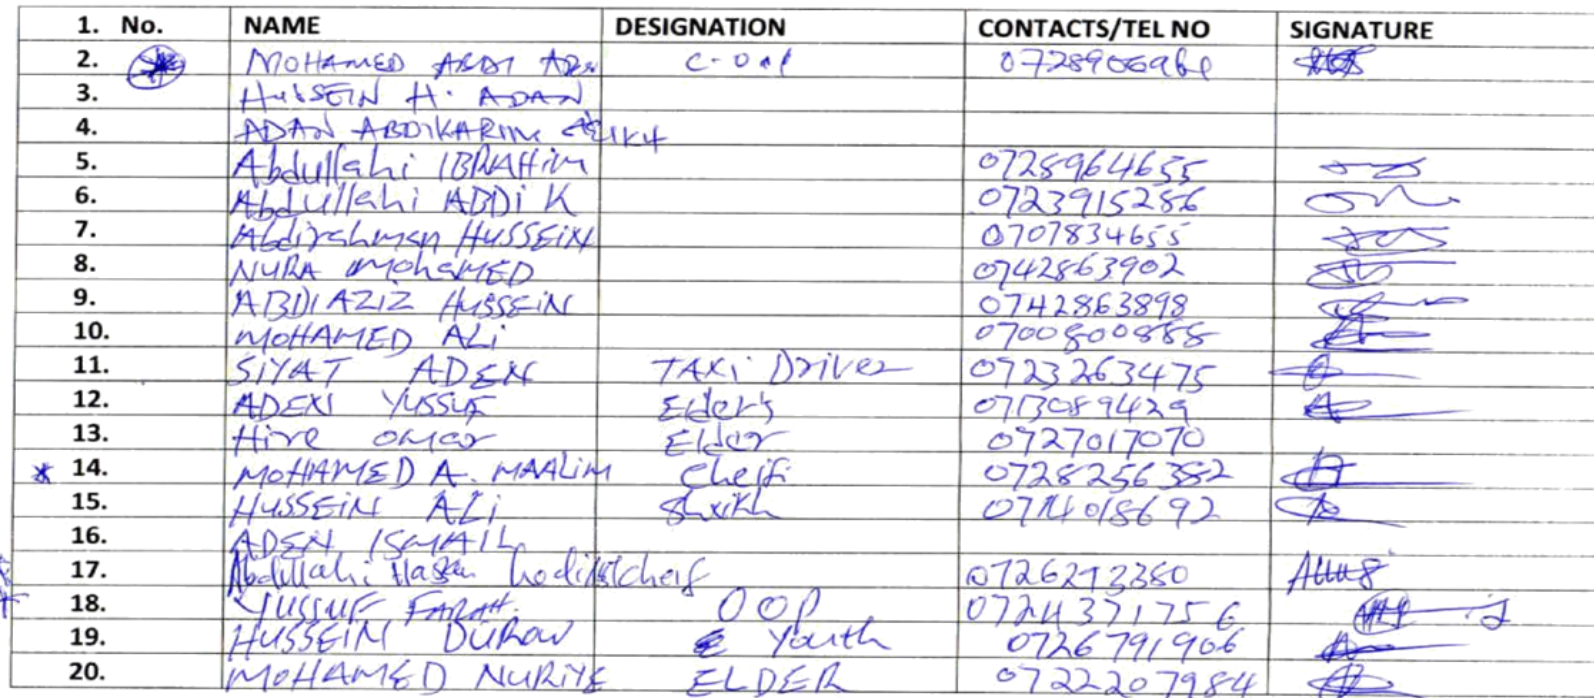 1. No. NAME DESIGNATION CONTACTS/TEL NO SIGNATURE
2. MOHAMED ABDI
3. HUSSEIN H. ADAN
4. ADAN ABDIKARIM
5. Abdullahi IBRAHim 0728964655
6. Abdullahi ABDi K 0723915286
7. Abdirahman HUSSEiN 0707834655
8. NURA mohaMED 0742863902
9. ABDIAZIZ HUSSEiN 0742863898
10. MOHAMED ALi 0700800888
11. SiYAT ADEN TAXi Driver 0723263475
12. ADEN YUSSUF Elder's 0713089429
13. Hire omar Elder 0727017070
14. MOHAMED A. MAALiM cheif 0728256382
15. HUSSEiN ALi
16. ADEN ISMAIL
17. Abdullahi Hassan cheif 0726293380
18. YUSSUF FARAH. OOP 0724371756
19. HUSSEIN DUROW Youth 0726791906
20. MOHAMED NURIYE ELDER 0722207984